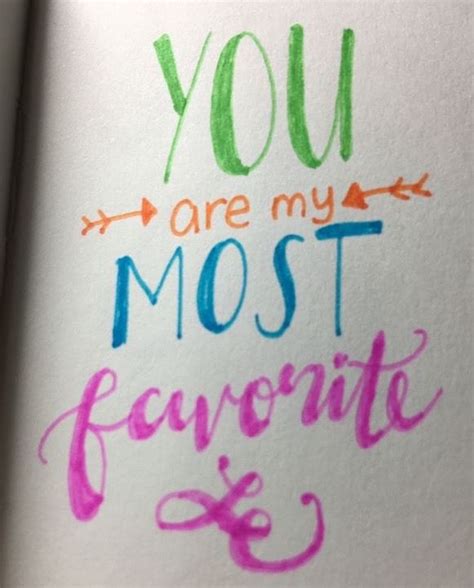 YOU
are my
MOST
favorite